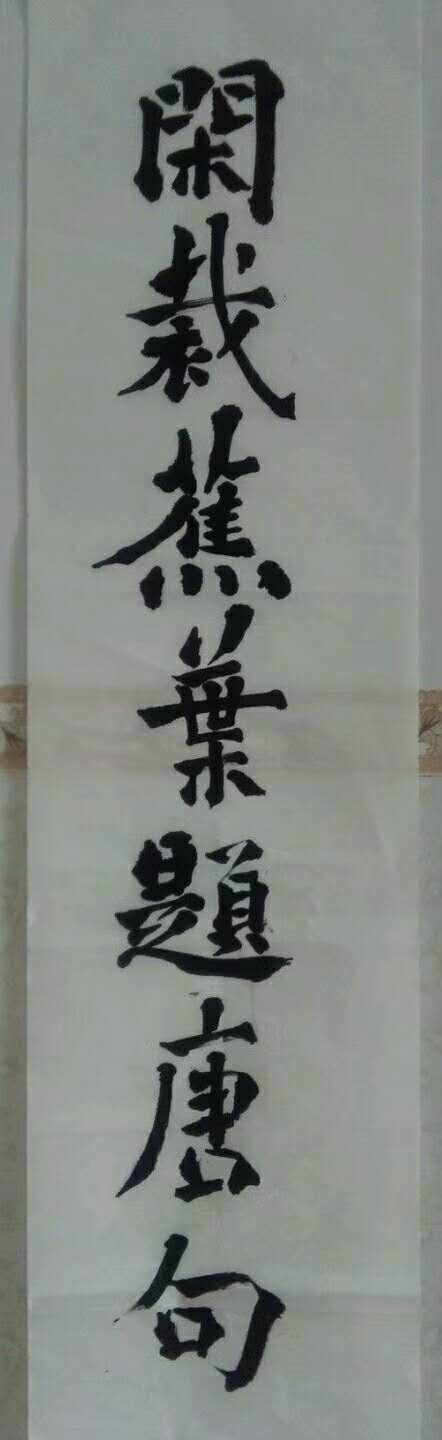 閑裁蕉葉題唐句